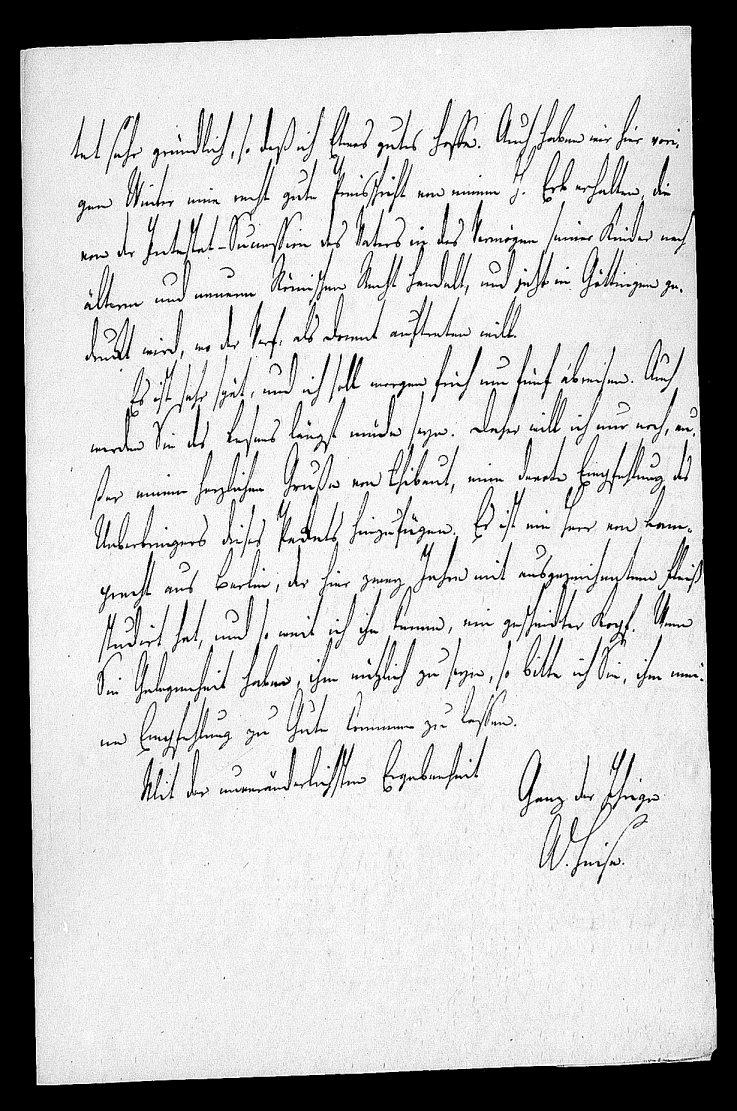 tet sehr gründlich, so daß ich Etwas gutes hoffe. Auch haben wir hier vori-
gen Winter eine recht gute Preisschrift von einem H. Erb erhalten, die
von der Intestat-Succession des Vaters in das Vermögen seiner Kinder nach
älterm und neuerm Römischen Recht handelt, und jetzt in Göttingen ge-
druckt wird, wo der Verf. als Docent auftreten will.
Es ist sehr spät, und ich soll morgen früh um fünf abreisen. Auch
werden Sie des Lesens längst müde seyn. Daher will ich nur noch, au-
ßer einem herzlichen Gruße von Thibaut, eine derote Empfehlung des
Ueberbringers dieses Packets hinzufügen. Es ist ein Herr von Lam-
precht aus Berlin, der hier zwey Jahre mit ausgezeichnetem Fleiß
studirt hat, und so weit ich ihn kenne, ein gescheidter Kopf. Wenn
Sie Gelegenheit haben, ihm nützlich zu seyn, so bitte ich Sie, ihm mei-
ne Empfehlung zu Gute kommen zu lassen.
Mit der unveränderlichsten Ergebenheit
Ganz der Ihrige
W. Heise.